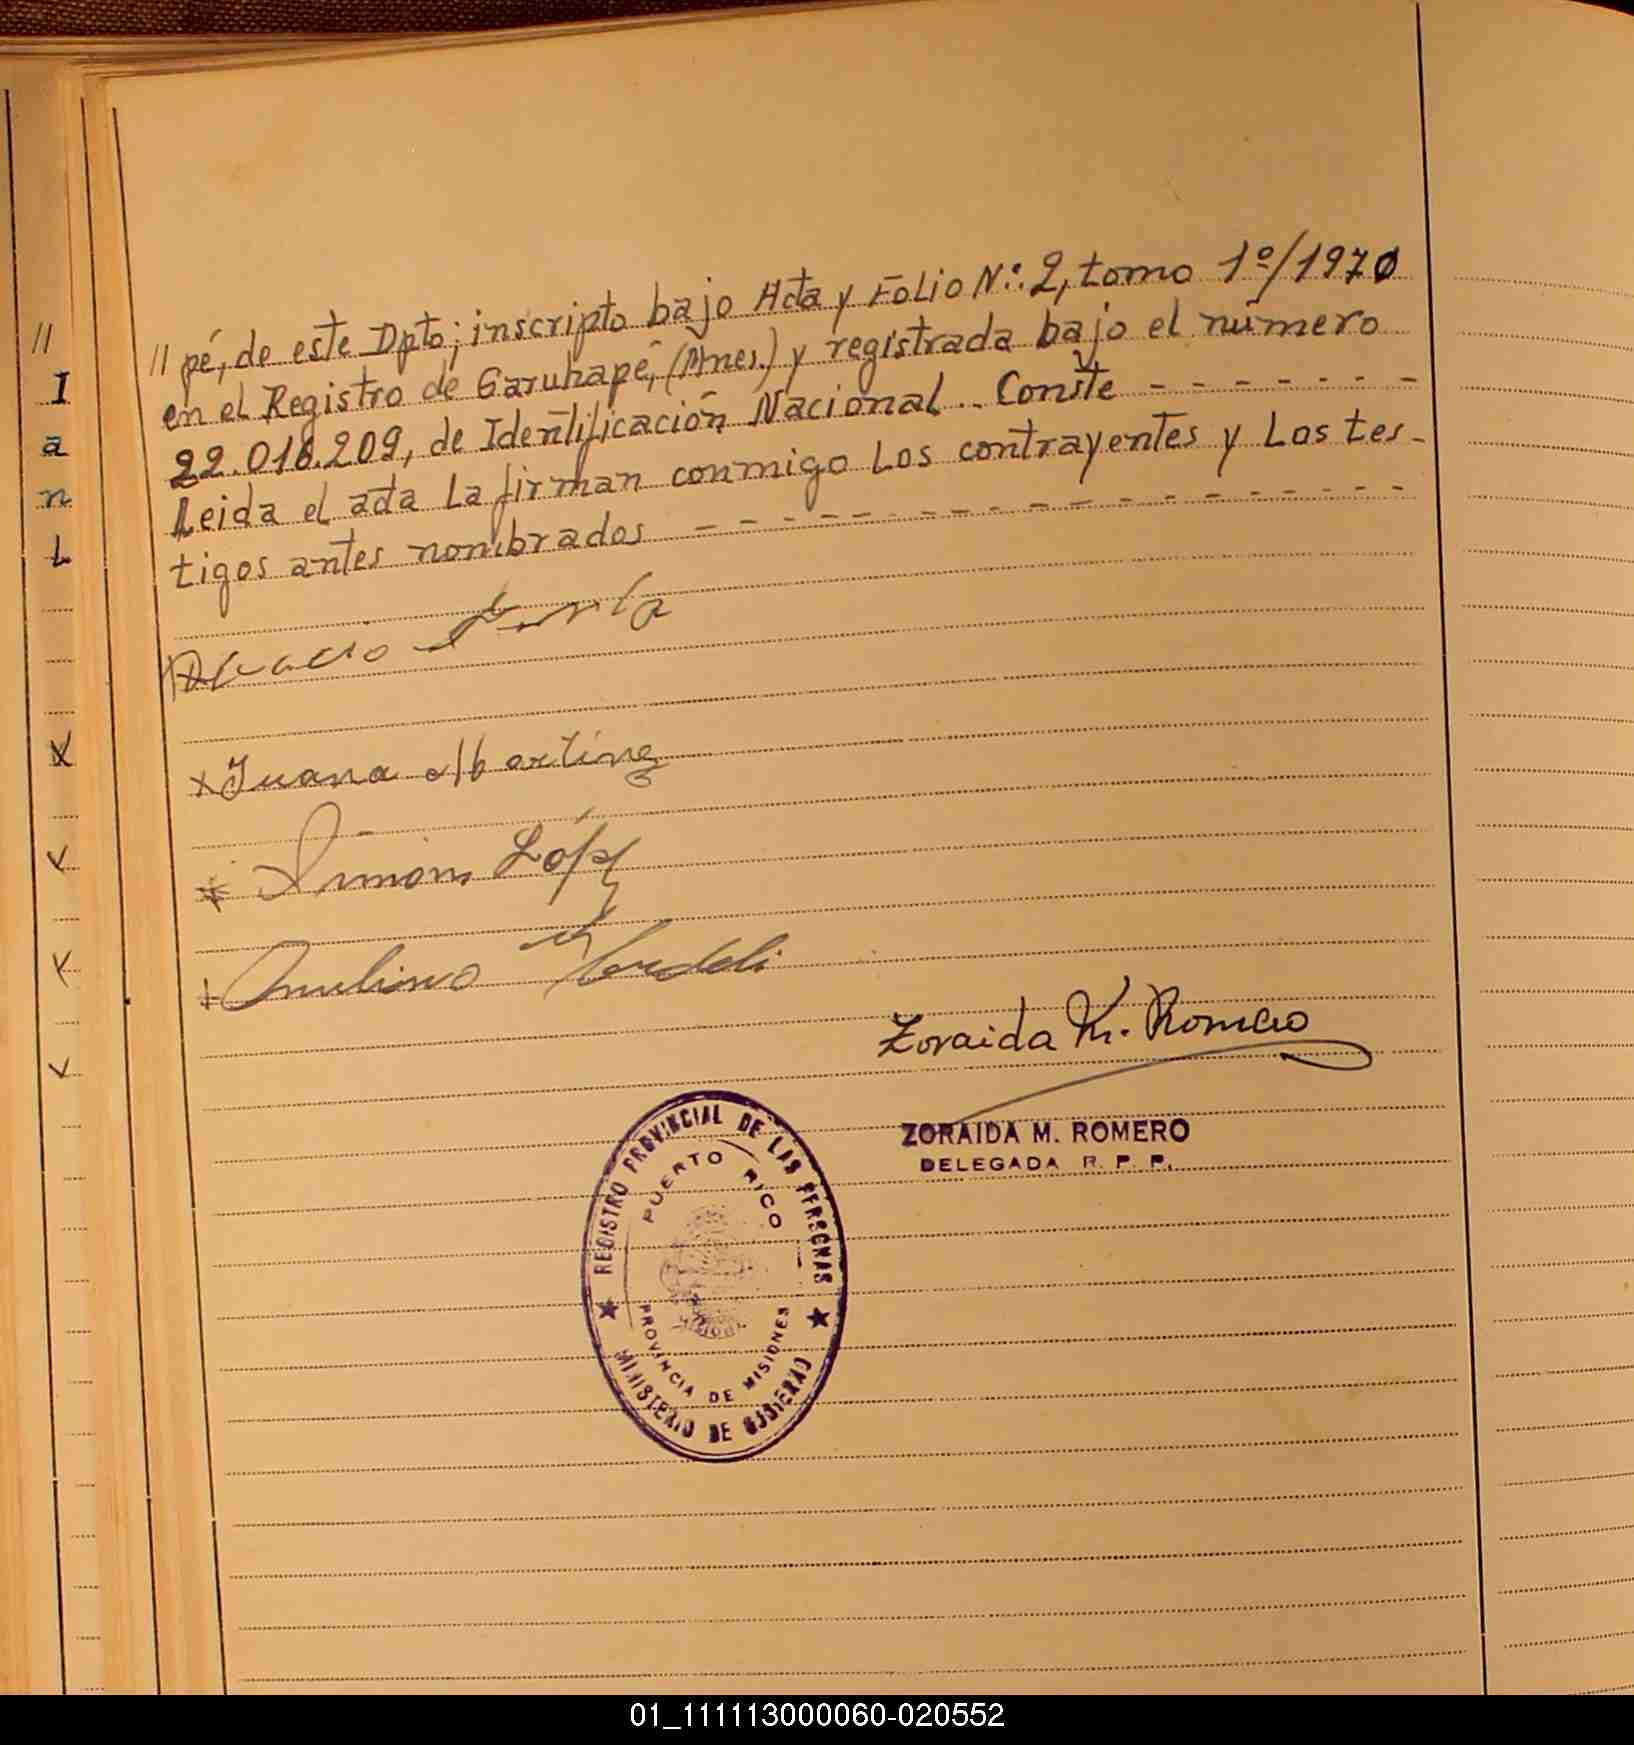 //
I
a
n
L
// pé, de este Dpto; inscripto bajo Acta y Folio N°: 2, tomo 1º/1970
en el Registro de Garuhapé, (Mnes.) y registrada bajo el número
22.018.209, de Identificación Nacional.. Conste - - - - - - -
Leida el acta La firman conmigo Los contrayentes y Los tes-
tigos antes nombrados - - - - - - - - - - - - - - - -
x Juana Martinez
Simón López
Zoraida M. Romero
ZORAIDA M. ROMERO
DELEGADA R. P. P.
REGISTRO PROVINCIAL DE LAS PERSONAS
PUERTO RICO
PROVINCIA DE MISIONES
MINISTERIO DE GOBIERNO
01_111113000060-020552